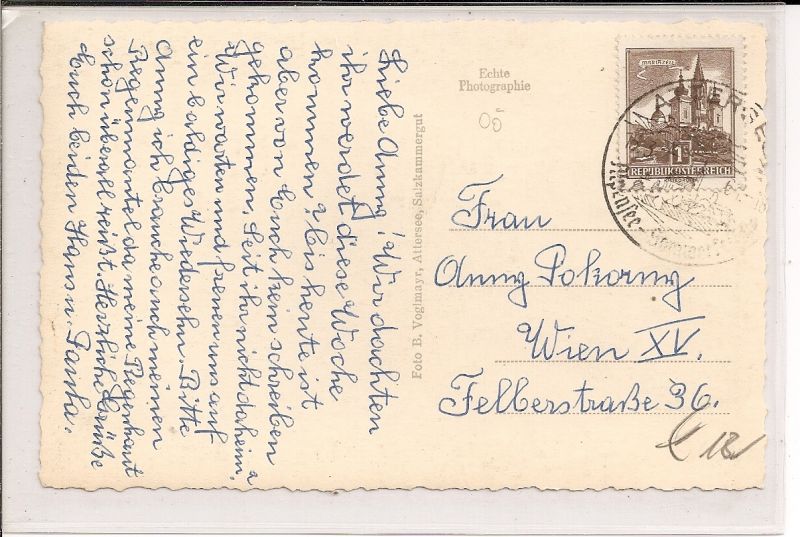 Liebe Anny! Wir dachten
ihr werdet diese Woche
kommen? Bis heute ist
aber von Euch kein schreiben
gekommen. Seit ihr nicht daheim?
Wir warten und freuen uns auf
ein baldiges Wiedersehn. Bitte
Anny ich brauche auch meinen
Regenmantel da meine Regenhaut
schon überall reißt. Herzliche Grüße
Euch beiden Hans u.
Foto B. Voglmayr, Attersee, Salzkammergut
Echte
Photographie
MARIAZELL
1
REPUBLIK ÖSTERREICH
ATTERSEE
Frau
Anny Pokorny
Wien XV.
Felberstraße 36.